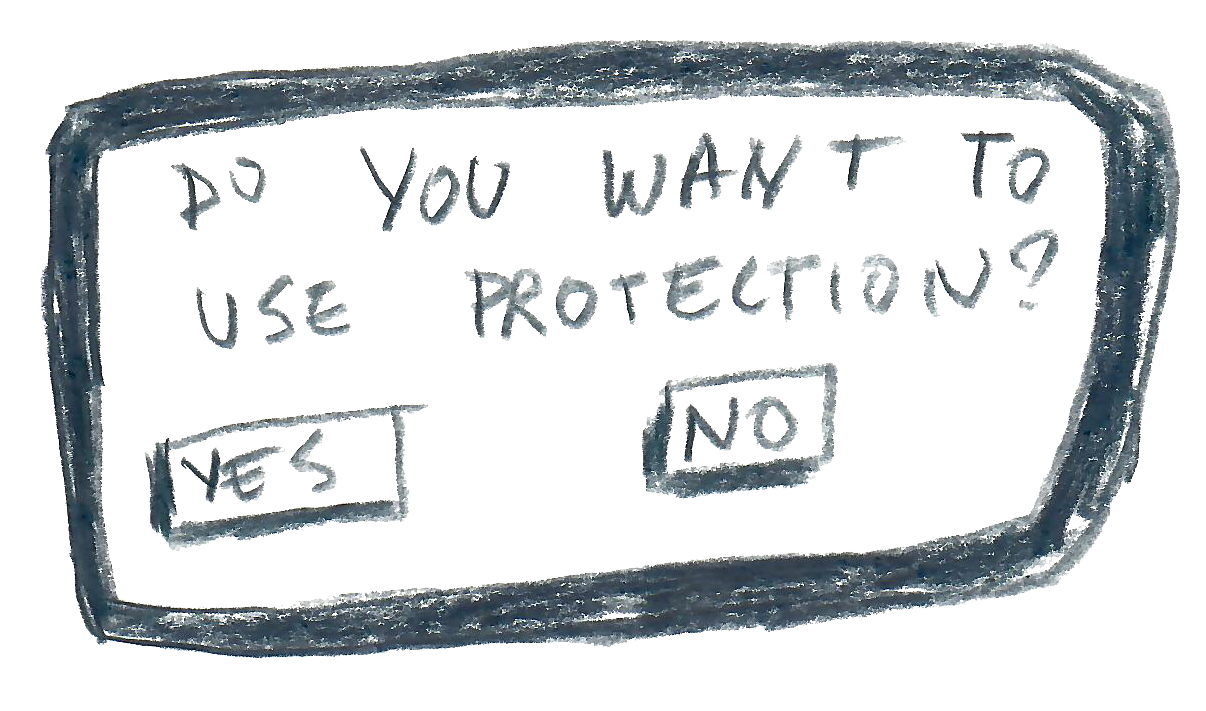 DO YOU WANT TO
USE PROTECTION?
YES NO